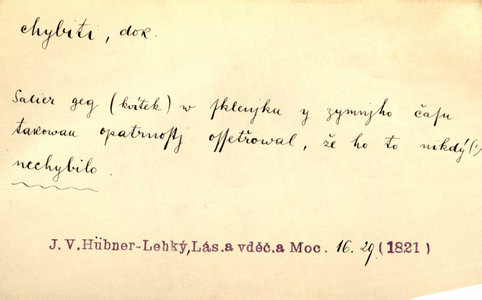 chybiti, dok.
Salier geg (kwitek) w sklenjku y zymnjho času
takowau opatrnostj ossetřowal, že ho to nikdý(!)
nechybilo.
J.V.Hübner-Lehký, Lás.a vděč.a Moc. 16.29 (1821)